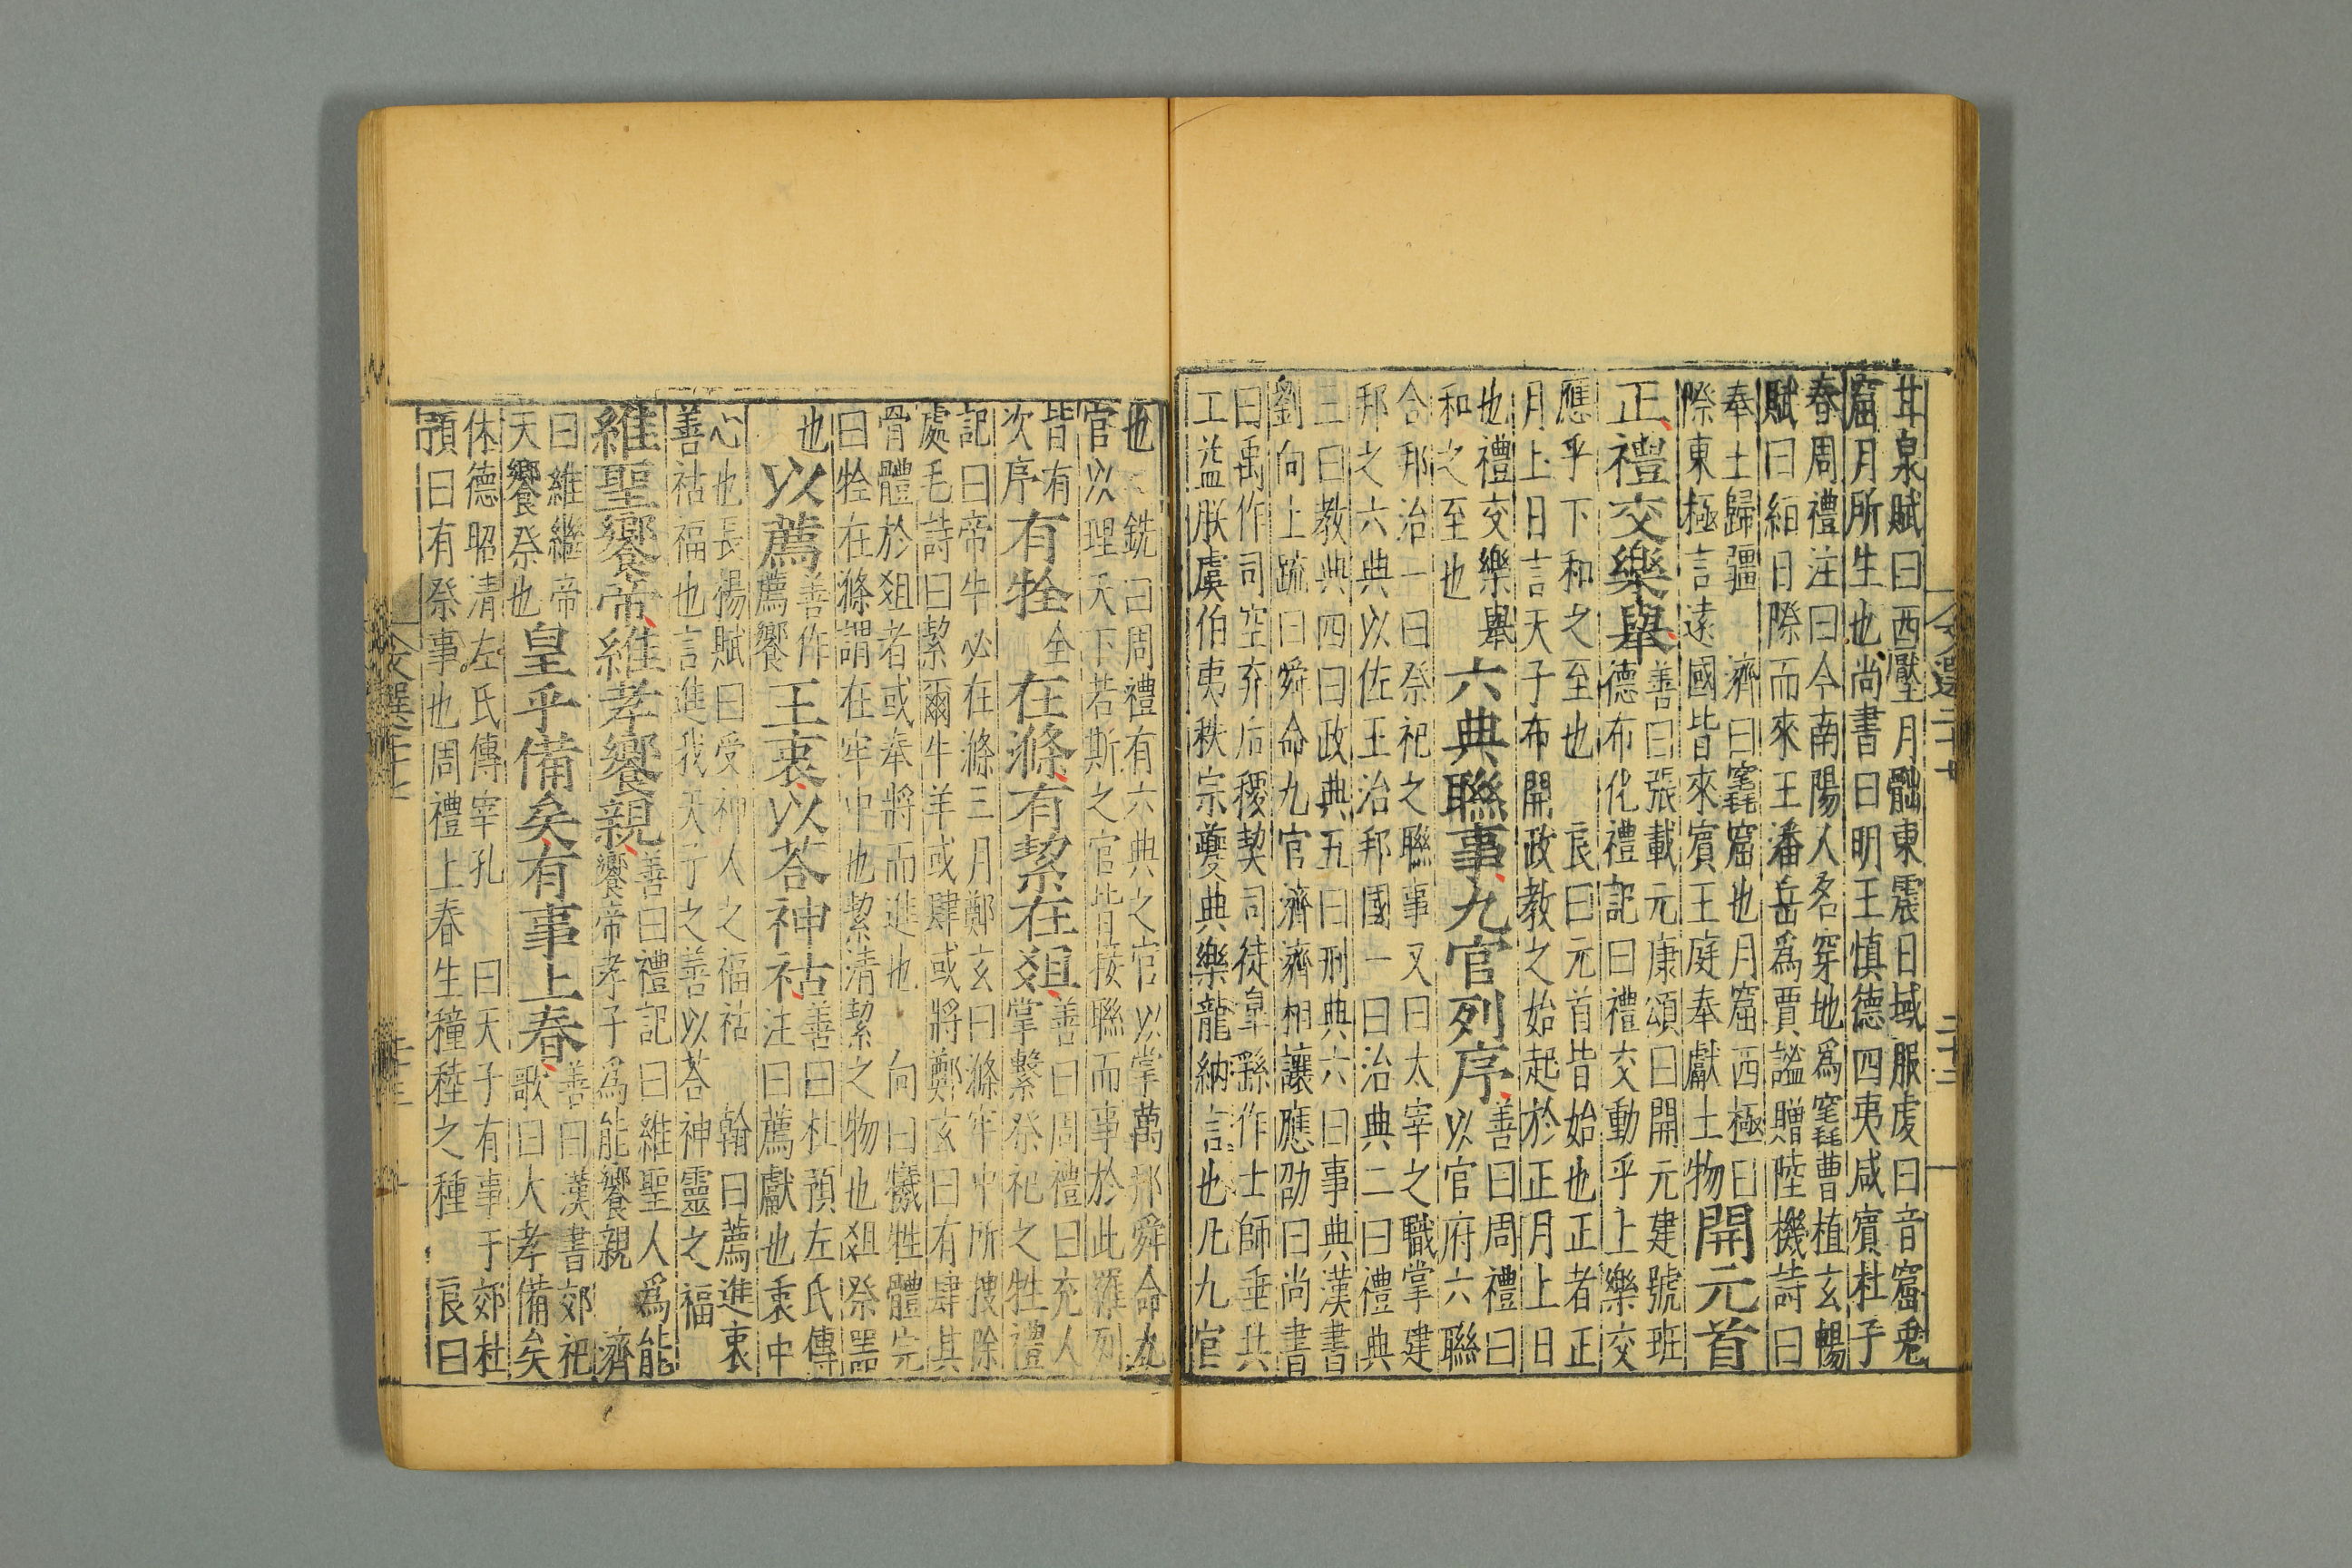 甘泉賦曰西壓月𩨳東震日域服虔曰音窟兎
窟月所生也尚書曰明王慎德四夷咸賓杜子
春周禮注曰今南陽人名穿地爲竁曹植玄暢
賦曰絙日際而來王潘岳爲賈謐贈陸機詩曰
奉土歸疆 濟曰竁窟也月窟西極日
際東極言遠國皆來賓王庭奉獻土物
開元首
正禮交樂舉
善曰張載元康頌曰開元建號班
德布化禮記曰禮交動乎上樂交
應乎下和之至也 良曰元首皆始也正者正
月上日言天子布開政教之始起於正月上日
也禮交樂舉
和之至也
六典聯事九官列序
善曰周禮曰
以官府六聯
合邦治一曰祭祀之聯事又曰太宰之職掌建
邦之六典以佐王治邦國一曰治典二曰禮典
三曰教典四曰政典五曰刑典六曰事典漢書
劉向上疏曰舜命九官濟濟相讓應劭曰尚書
曰禹作司空弃后稷契司徒臯繇作士師垂共
工益朕虞伯夷秩宗夔典樂龍納言也凡九官
也 銑曰周禮有六典之官以掌萬邦舜命九
官以理天下若斯之官皆接聯而事於此羅列
皆有
次序
有牷
全
在滌有絜在俎
善曰周禮曰充人
掌繫祭祀之牲禮
記曰帝牛必在滌三月鄭玄曰滌牢中所搜除
處毛詩曰絜爾牛羊或肆或將鄭玄曰有肆其
骨體於俎者或奉將而進也 向曰犧牲體完
曰牷在滌謂在牢中也絜清絜之物也俎祭器
也
以薦
善作
薦饗
王衷以荅神祜
善曰杜預左氏傳
注曰薦獻也衷中
心也長楊賦曰受神人之福祜 翰曰薦進衷
善祜福也言進我天子之善以荅神靈之福
維聖饗帝維孝饗親
善曰禮記曰維聖人爲能
饗帝孝子爲能饗親 濟
曰維繼帝
天饗祭也
皇乎備矣有事上春
善曰漢書郊祀
歌曰大孝備矣
休德昭清左氏傳宰孔 曰天子有事于郊杜
預曰有祭事也周禮上春生穜稑之種 良曰